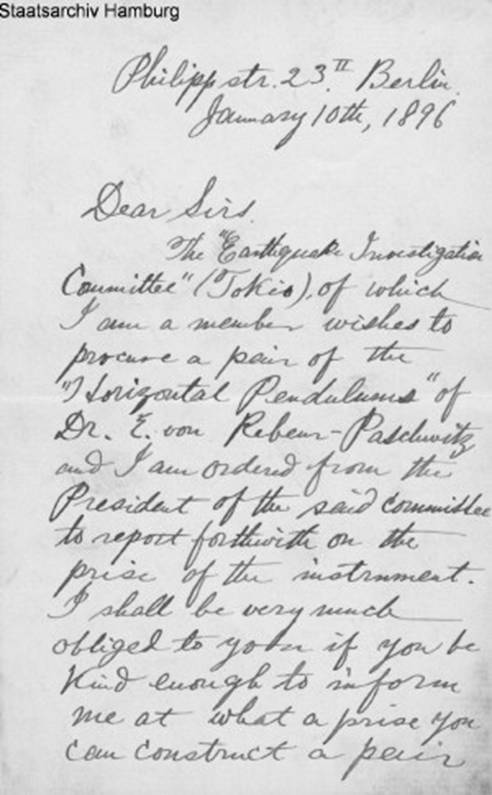 Staatsarchiv Hamburg
Philippstr. 23.II Berlin.
January 10th, 1896
Dear Sirs.
The "Earthquake Investigation
Committee" (Tokio), of which
I am a member wishes to
procure a pair of the
"Horizontal Pendulums" of
Dr. E. von Rebeur-Paschwitz
and I am ordered from the
President of the said committee
to report forthwith on the
prise of the instrument.
I shall be very much
obliged to you if you be
kind enough to inform
me at what a prise you
can construct a pair